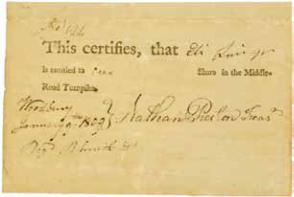 This certifies, that Eli
is entitled to One Share in the Middle-
Road Turnpike.
Woodbury
January 9th 1809 Nathan Preston Treasr